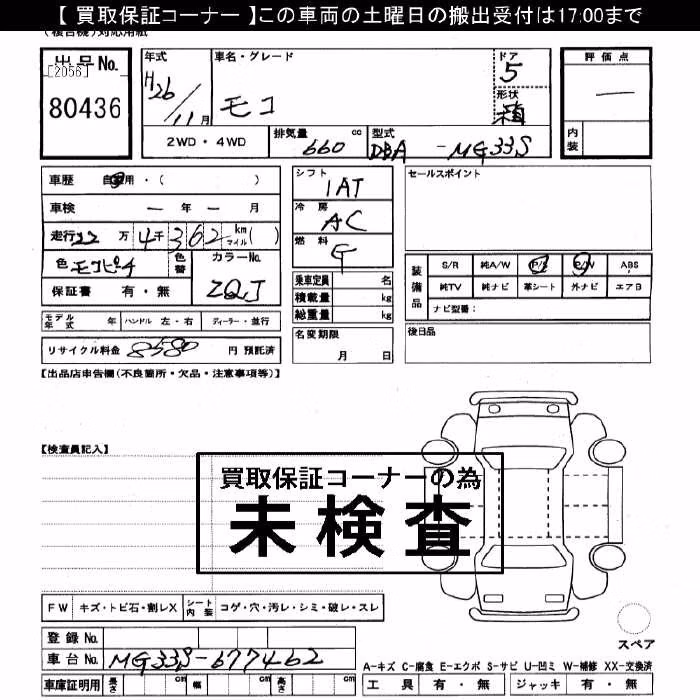 【 買取保証コーナー 】この車両の土曜日の搬出受付は17:00まで
対応用紙
出品No.
[2056]
80436
年式
H26/11月
車名・グレード
モコ
ドア
5
形状
箱
評価点
―
内装
2WD・4WD
排気量 660 cc
型式 DBA-MG33S
車歴 自家用・( )
車検 ― 年 ― 月
走行 22万4千362 km マイル( )
色 モコピーチ
色替
カラーNo.
ZQJ
保証書 有・無
モデル年式 年
ハンドル 左・右
ディーラー・並行
リサイクル料金 8580 円 預託済
シフト
IAT
冷房
AC
燃料
G
乗車定員 名
積載量 kg
総重量 kg
名変期限
月 日
セールスポイント
装備品
S/R 純A/W P/S P/W ABS
純TV 純ナビ 革シート 外ナビ エアB
ナビ型番:
後日品
【出品店申告欄(不良箇所・欠品・注意事項等)】
【検査員記入】
買取保証コーナーの為
未検査
FW キズ・トビ石・割レX
シート内装 コゲ・穴・汚レ・シミ・破レ・スレ
スペア
登録No.
車台No. MG33S-677462
A-キズ C-腐食 E-エクボ S-サビ U-凹ミ W-補修 XX-交換済
車庫証明用 長さ cm 幅 cm 高さ cm
工具 有・無 ジャッキ 有・無